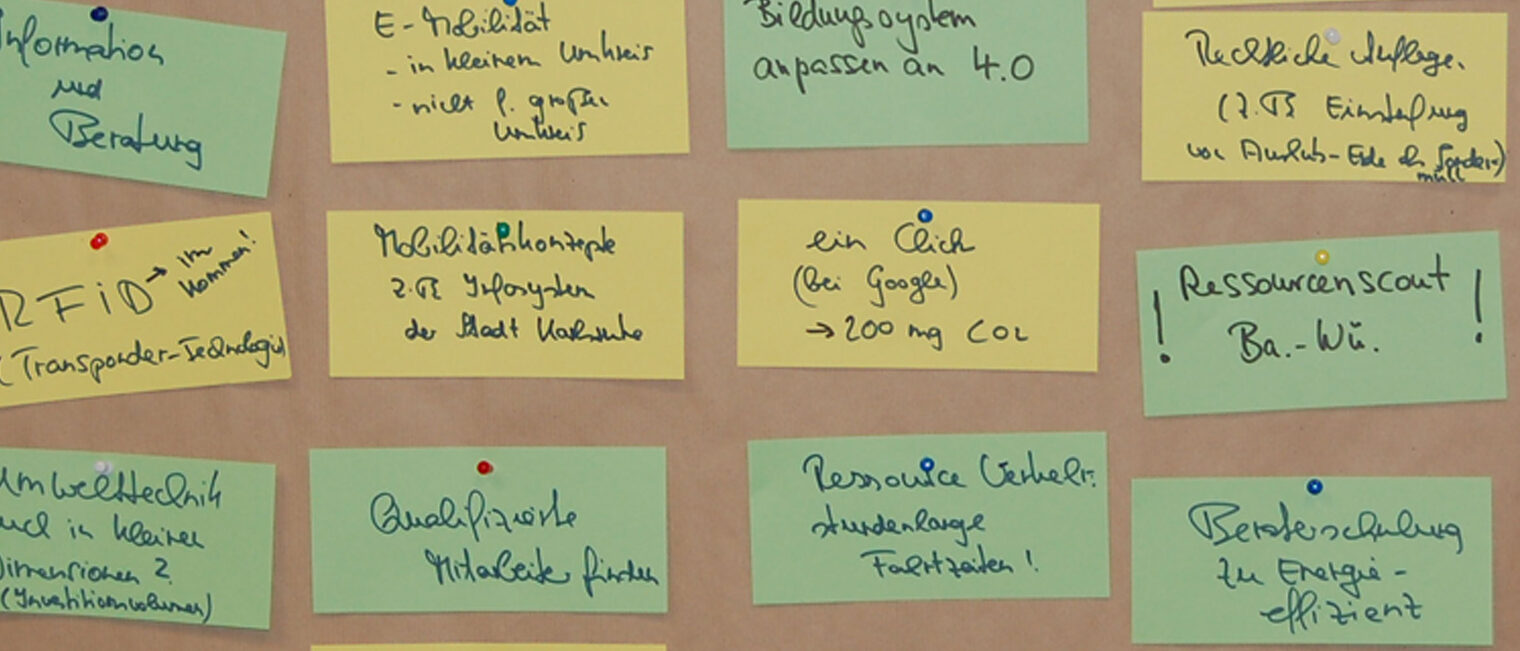 Information
und
Beratung
E-Mobilität
- in kleinem Umkreis
- nicht f. großen
Umkreis
Bildungssystem
anpassen an 4.0
Rechtliche Auflage.
(z.B Einstufung
von Aushub-Erde als Sonder-)
müll
RFiD → im
kommen!
(Transponder-Technologie
Mobilitätskonzepte
z.B Infosystem
der Stadt Karlsruhe
ein Click
(bei Google)
→ 200 mg CO2
! Ressourcenscout !
Ba.-Wü.
Umwelttechnik
auch in kleinen
Dimensionen ?
(Investitionsvolumen)
Qualifizierte
Mitarbeiter finden
Ressource Verkehr:
stundenlange
Fahrtzeiten !
Beraterschulung
zu Energie-
effizienz